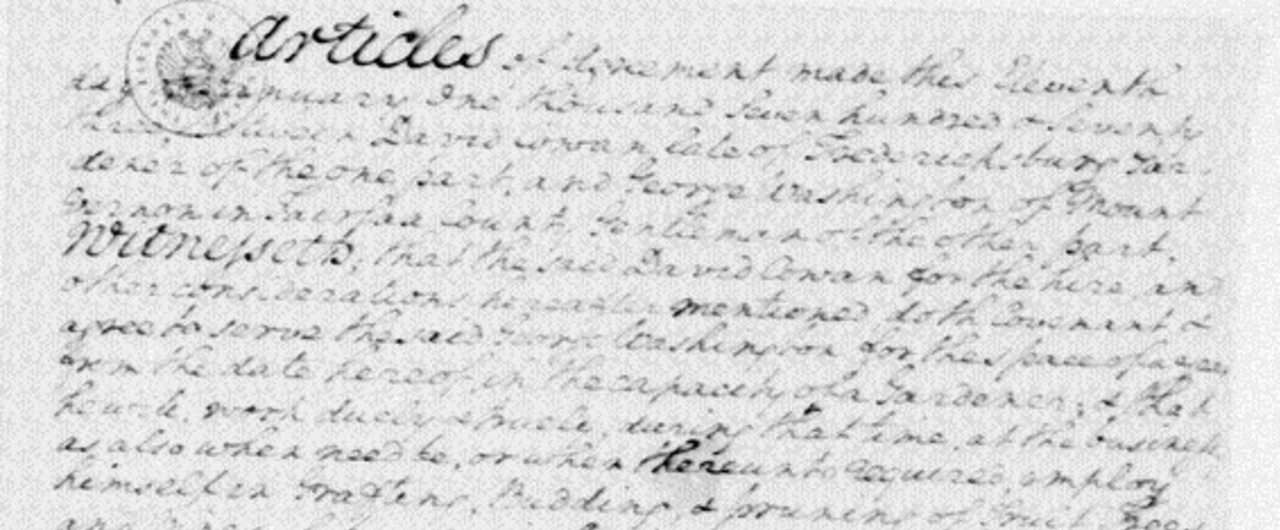 Articles of Agreement made this Eleventh
day January One thousand Seven hundred & Seventy
three between David Cowan late of Fredericksburg Gar
dener of the one part, and George Washington of Mount
Vernon in Fairfax County Gentleman of the other part.
Witnesseth, that the said David Cowan for the hire and
other considerations hereafter mentioned doth Covenant &
agree to serve the said George Washington for the space of a year
from the date hereof in the capacity of a Gardener; & that
he will work duely & truely, during that time, at the business
as also when need be, or when thereunto required, employ
himself in Grafting, Budding, & pruning of Fruit Trees
and